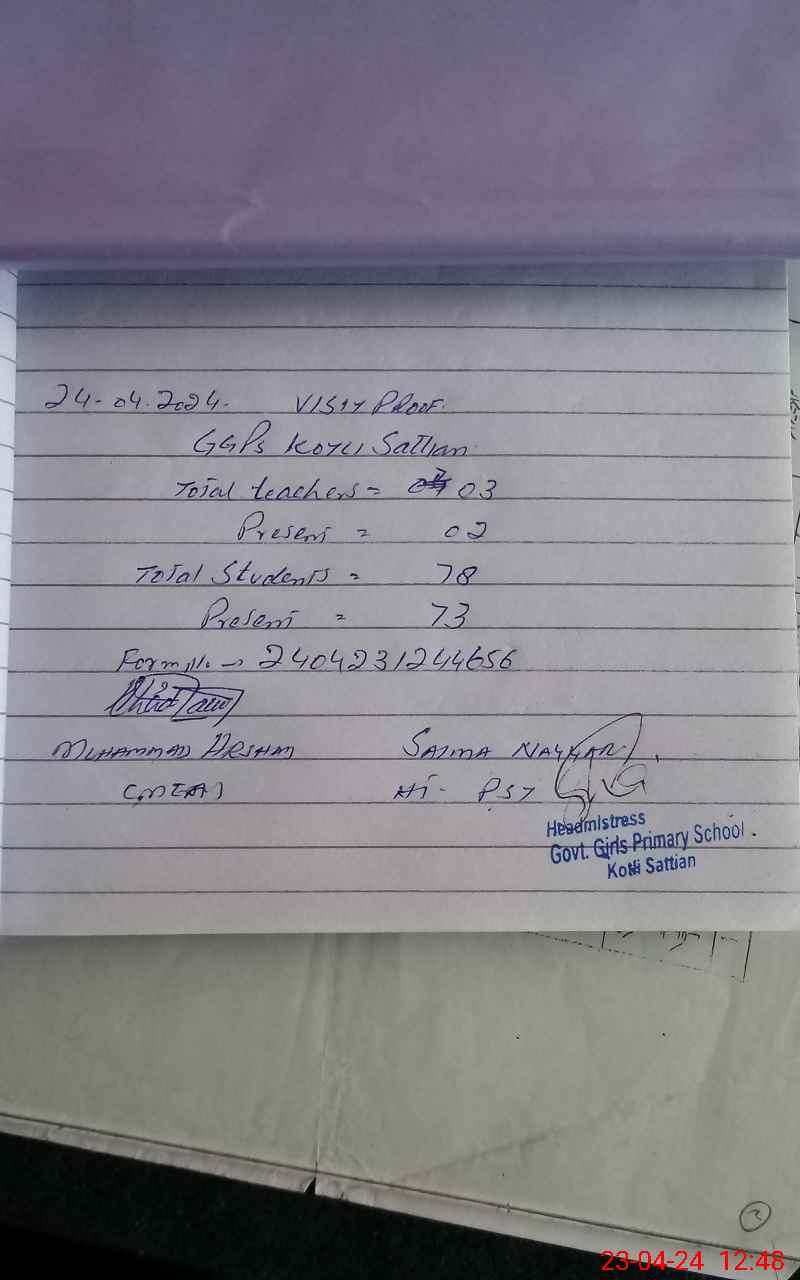 24-04.2024. VISIT PROOF.
GGPS KOTLI Sattian.
Total teachers = 03
Present = 02
Total Students = 78
Present = 73
Form No. → 2404231244656
MUHAMMAD ARSHAD SAIMA
Ht- PST
Headmistress
Govt. Girls Primary School
Kotli Sattian
3
23-04-24 12:48